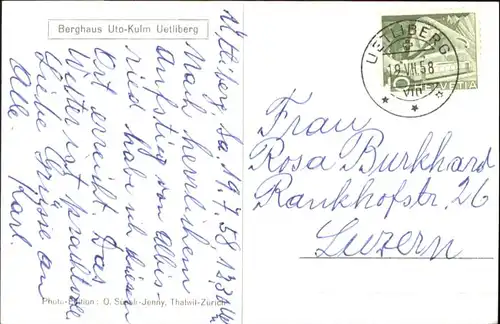 Berghaus Uto-Kulm Uetliberg
Uetliberg, Sa. 19.7.58
Nach herrlichem
Aufstieg von Albis-
ried habe ich diesen
Ort erreicht. Das
Wetter ist prachtvoll.
Liebe Grüsse an
Alle.
Karl.
Photo-Edition : O. Jenny, Thalwil-Zürich
UETLIBERG
19.VII.58
HELVETIA
Frau
Rosa Burkhard
Rankhofstr. 26
Luzern